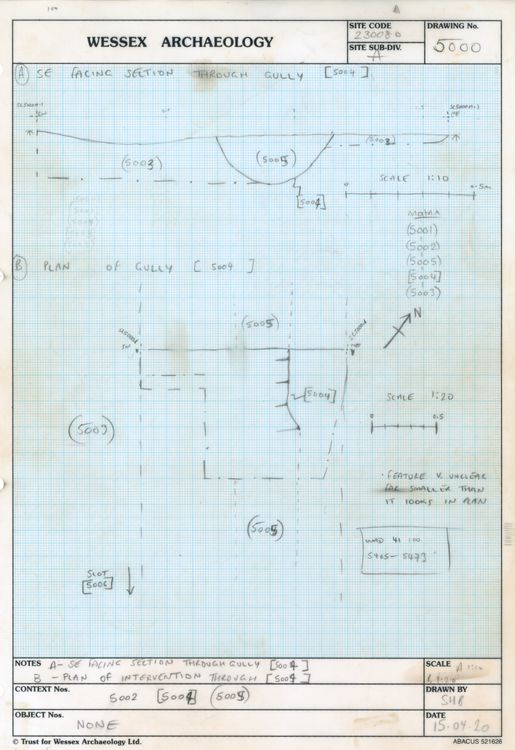 WESSEX ARCHAEOLOGY
SITE CODE
230080
SITE SUB-DIV.
A
DRAWING No.
5000
A SE FACING SECTION THROUGH GULLY [5004]
(5003)
(5005)
(5003)
[5004]
SCALE 1:10
0 0.5m
MATRIX
(5001)
(5002)
(5005)
[5004]
(5003)
B PLAN OF GULLY [5004]
(5005)
N
[5004]
SCALE 1:20
0 0.5
(5003)
FEATURE V. UNCLEAR
FAR SMALLER THAN
IT LOOKS IN PLAN
(5005)
5465-5473
SLOT
[5006]
NOTES A- SE FACING SECTION THROUGH GULLY [5004]
B - PLAN OF INTERVENTION THROUGH [5004]
SCALE A 1:10
B 1:20
CONTEXT Nos.
5002 [5004] (5005)
DRAWN BY
SHB
OBJECT Nos.
NONE
DATE
15.04.20
© Trust for Wessex Archaeology Ltd.
ABACUS 521626